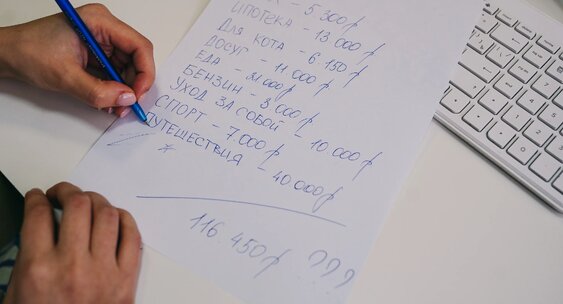 - 5 300р
ИПОТЕКА - 13 000р
ДЛЯ КОТА - 6 150р
ДОСУГ - 11 000р
ЕДА - 21 000р
БЕНЗИН - 3 000р
УХОД ЗА СОБОЙ - 10 000р
СПОРТ - 7 000р
ПУТЕШЕСТВИЯ - 40 000р
116 450р ???